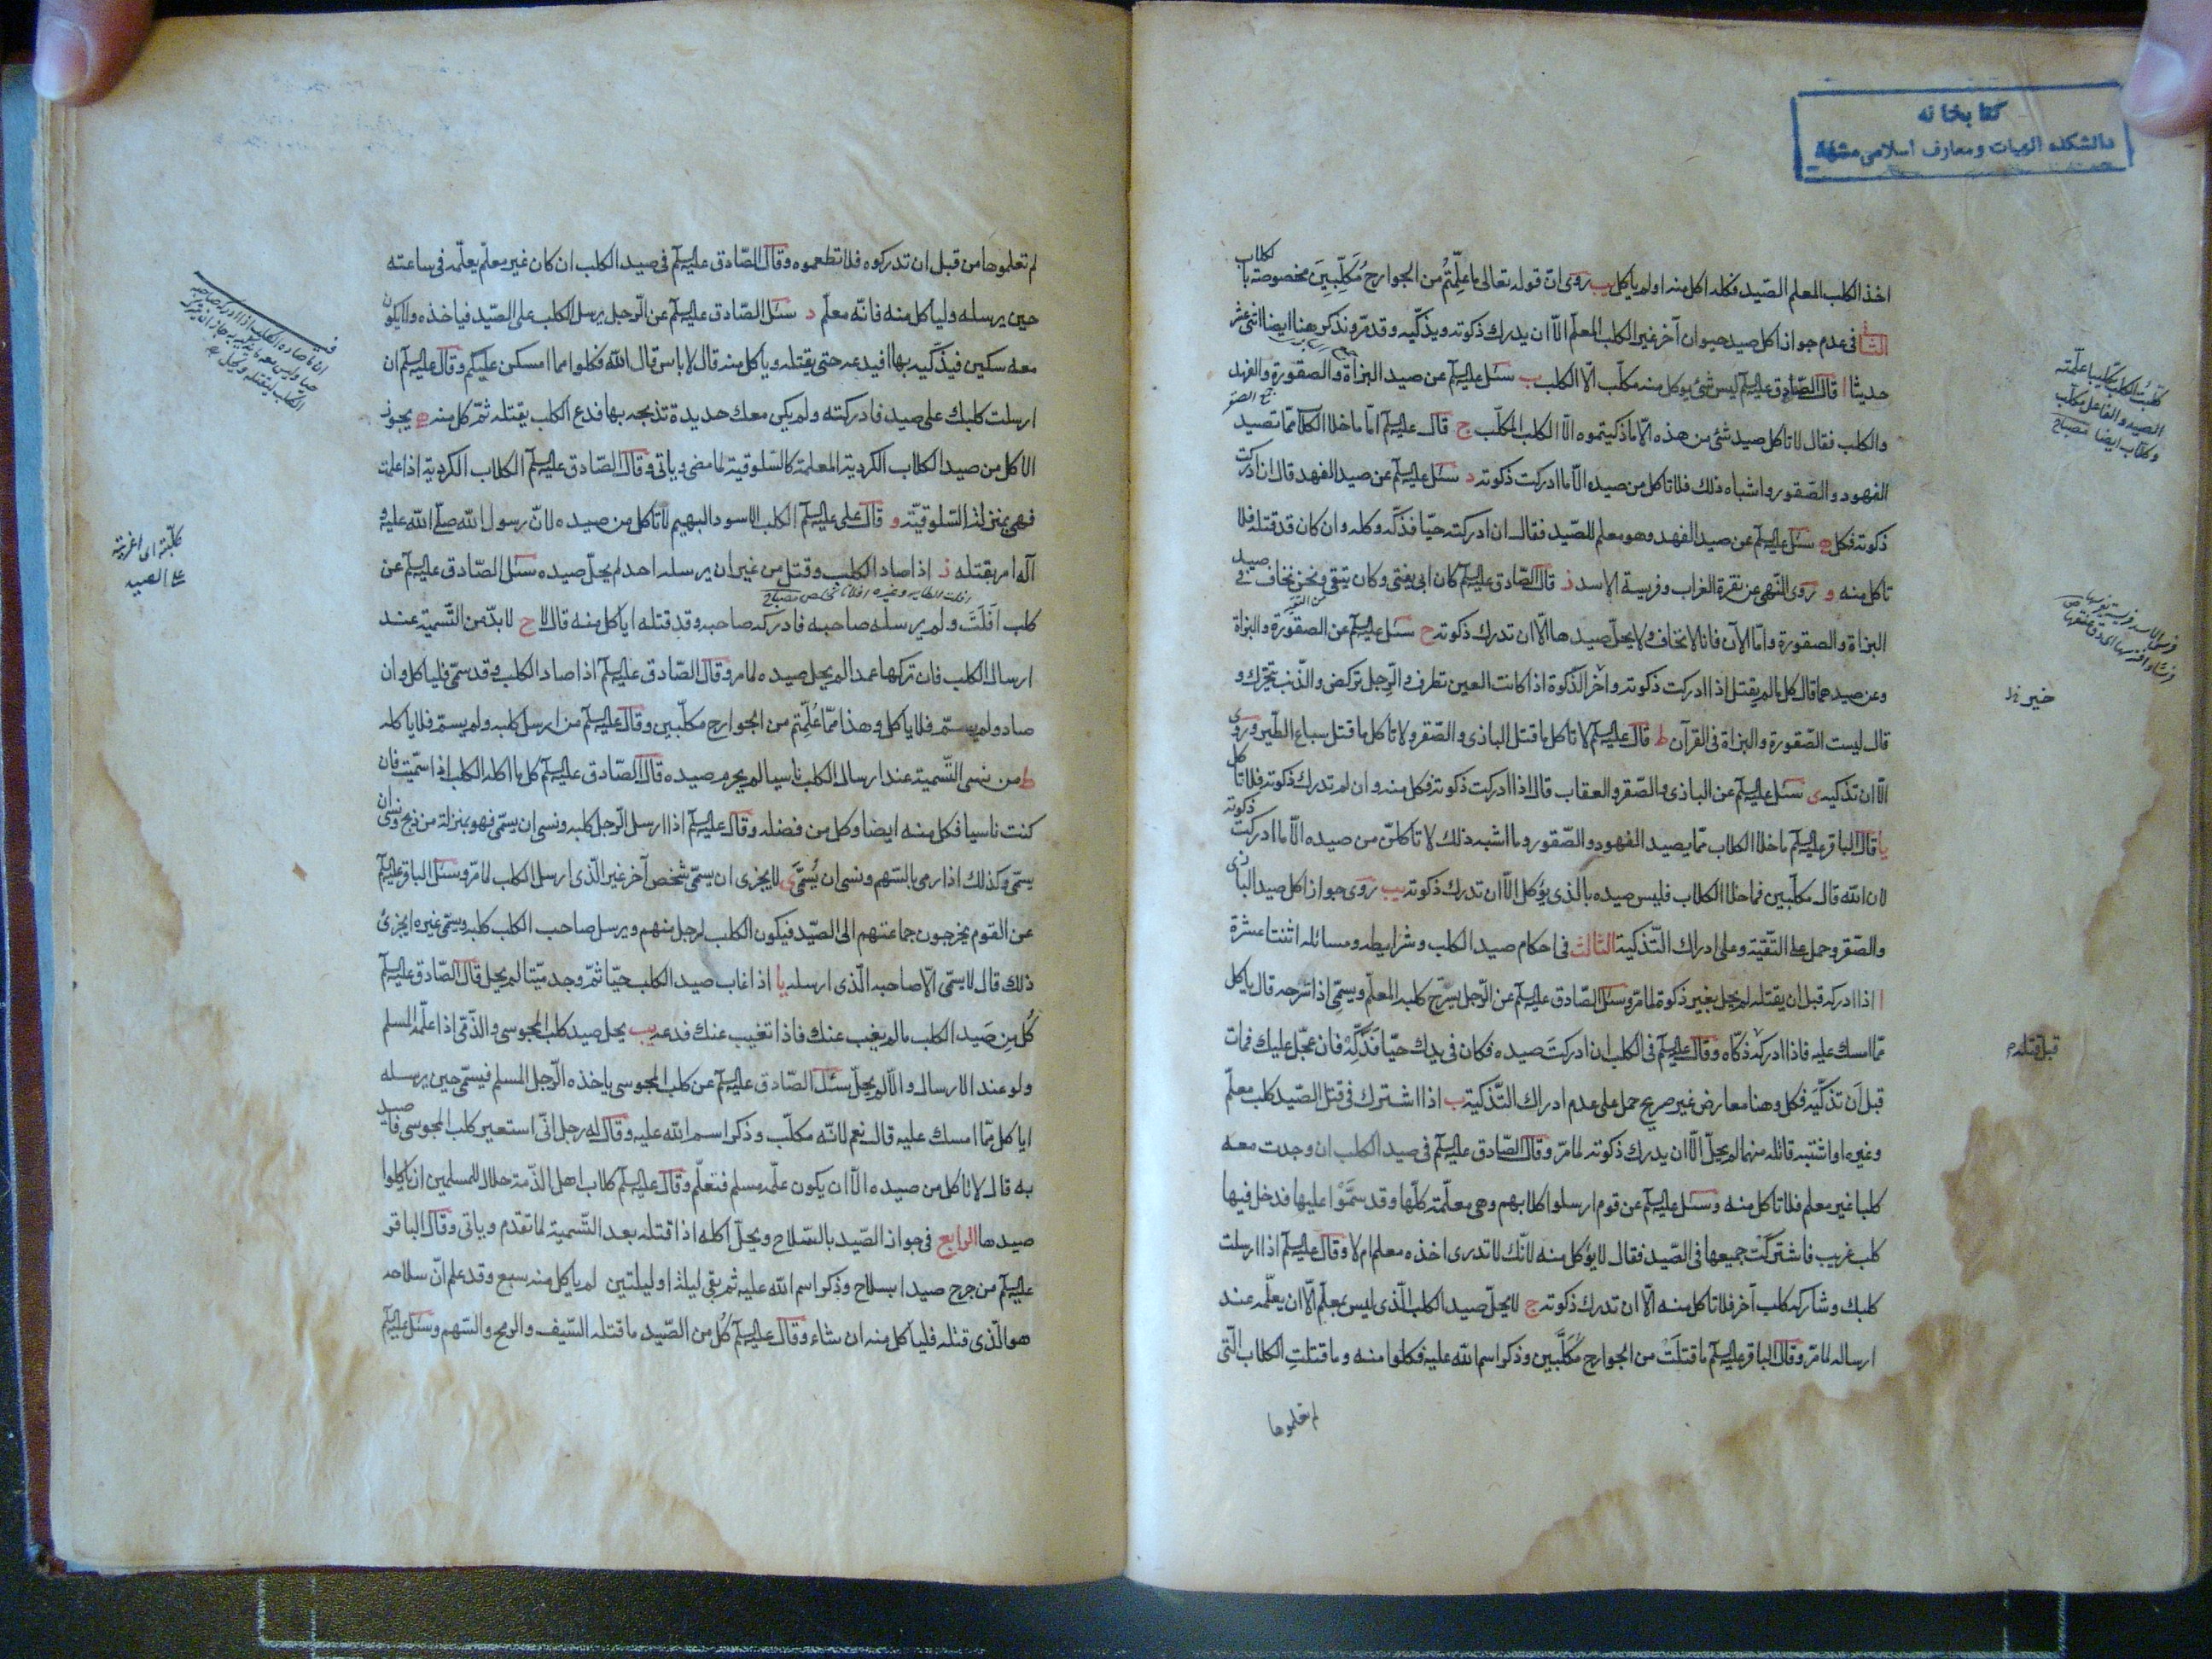 كتابخانه
دانشكده الهيات ومعارف اسلامى مشهد
اخذ الكلب المعلم الصّيد فكله اكل منه اولم ياكل يب روى انّ قوله تعالى ما علّمتم من الجوارح مُكَلِّبينَ مخصوصة بالكلاب
فى عدم جواز اكل صيد حيوان آخر غير الكلب المعلّم الّا ان يدرك ذكوته ويذكّيه وقد مرّ ونذكر هنا ايضا اثنى عشر
حديثا ا قال الصّادق عليه السلم ليس شئ يوكل منه مكلّب الّا الكلب ب سئل عليه السلم عن صيد البزاة والصقورة والفهد
والكلب فقال لا تاكل صيد شئ من هذه الّا ما ذكيتموه الّا الكلب المكلّب ج قال عليه السلم امّا ما خلا الكلاب ممّا تصيد
الفهود والصّقور واشباه ذلك فلا تاكل من صيده الّا ما ادركت ذكوته د سئل عليه السلم عن صيد الفهد قال ان ادركت
ذكوته فكل ه سئل عليه السلم عن صيد الفهد وهو معلم للصّيد فقال ان ادركته حيّا فذكّه وكله وان كان قد قتله فلا
تاكل منه و روى النّهى عن نقرة الغراب وفريسة الاسد ز قال الصّادق عليه السلم كان ابى يفتى وكان يتّقى ونحن نخاف فى صيد
البزاة والصقورة وامّا الآن فانا لا نخاف ولا يحلّ صيدها الّا ان تدرك ذكوته ح سئل عليه السلم عن الصقورة والبزاة
وعن صيدهما قال كل ما لم يقتل اذا ادركت ذكوته وآخر الذّكوة اذا كانت العين تطرف والرّجل تركض والذّنب يتحرّك و
قال ليست الصّقورة والبزاة فى القرآن ط قال عليه السلم لا تاكل ما قتل البازى والصّقر ولا تاكل ما قتل سباع الطّير وروى
الّا ان تذكّيه ى سئل عليه السلم عن البازى والصّقر والعقاب قال اذا ادركت ذكوته فكل منه وان لم تدرك ذكوته فلا تاكل
يا قال الباقر عليه السلم ما خلا الكلاب ممّا يصيد الفهود والصّقور وما اشبه ذلك لا تاكلنّ من صيده الّا ما ادركت ذكوته
لان الله قال مكلّبين فما خلا الكلاب فليس صيده بالذى يؤكل الّا ان تدرك ذكوته يب روى جواز اكل صيد البازى
والصّقر وحمل على التّقيّة وعلى ادراك التّذكية الثالث فى احكام صيد الكلب وشرايطه ومسائله اثنتا عشرة
ا اذا ادركه قبل ان يقتله لم يحل بغير ذكوة لما مرّ وسئل الصّادق عليه السلم عن الرّجل يسرّح كلبه المعلّم ويسمّى اذا سرّحه قال ياكل
ممّا امسك عليه فاذا ادركه ذكّاه وقال عليه السلم فى الكلب ان ادركتَ صيده فكان فى يدك حيّا فَذَكِّهْ فان عجّل عليك فمات
قبل ان تذكّيَه فكل وهنا معارض غير صريح حمل على عدم ادراك التّذكية ب اذا اشترك فى قتل الصّيد كلب معلّم
وغيره او اشتبه قاتله منهما لم يحلّ الّا ان يدرك ذكوته لما مرّ وقال الصّادق عليه السلم فى صيد الكلب ان وجدت معه
كلبا غير معلم فلا تاكل منه وسئل عليه السلم عن قوم ارسلوا كلابهم وهى معلّمة كلّها وقد سَمَّوْا عليها فدخل فيها
كلب غريب فاشتركت جميعها فى الصّيد فقال لا يؤكل منه لانّك لا تدرى اخذه معلم ام لا وقال عليه السلم اذا ارسلت
كلبك وشاركه كلب آخر فلا تاكل منه الّا ان تدرك ذكوته ج لا يحلّ صيد الكلب الّذى ليس بمعلّم الّا ان يعلّمه عند
ارساله لما مرّ وقال الباقر عليه السلم ما قتلَتْ من الجوارح مُكَلَّبين وذكر اسم الله عليه فكلوا منه وما قتلتِ الكلاب الّتى
لم تعلموها
خير خل
قبل قتله م
لم تعلموها من قبل ان تدركوه فلا تطعموه وقال الصّادق عليه السلم فى صيد الكلب ان كان غير معلّم يعلّمه فى ساعته
حين يرسله ولياكل منه فانّه معلّم د سئل الصّادق عليه السلم عن الرّجل يرسل الكلب على الصّيد فياخذه ولا يكون
معه سكين فيذكّيه بها افيدعه حتى يقتله وياكل منه قال لا باس قال الله فكلوا مما امسكن عليكم وقال عليه السلم ان
ارسلت كلبك على صيد فادركته ولم يكن معك حديدة تذبحه بها فدع الكلب يقتله ثمّ كل منه ه يجوز
الاكل من صيد الكلاب الكردية المعلمة كالسّلوقية لما مضى وياتى وقال الصّادق عليه السلم الكلاب الكردية اذا علمت
فهى بمنزلة السّلوقيّة و قال على عليه السلم الكلب الاسود البهيم لا تاكل من صيده لانّ رسول الله صلّى الله عليه و
آله امر بقتله ز اذا صاد الكلب وقتل من غير ان يرسله احد لم يحلّ صيده سئل الصّادق عليه السلم عن
كلب اَفلَتَ ولم يرسله صاحبه فادركه صاحبه وقد قتله اياكل منه قال لا ح لا بدّ من التّسمية عند
ارسال الكلب فان تركها عمدا لم يحل صيده لما مر وقال الصّادق عليه السلم اذا صاد الكلب وقد سمّى فلياكل وان
صاد ولم يسمّ فلا ياكل وهذا ممّا عُلِّمتم من الجوارح مكلّبين وقال عليه السلم من ارسل كلبه ولم يسم فلا ياكله
ط من نسى التّسمية عند ارسال الكلب ناسيا لم يحرم صيده قال الصّادق عليه السلم كل ما اكله الكلب اذا سمّيت فان
كنت ناسيا فكل منه ايضا وكل من فضله وقال عليه السلم اذا ارسل الرّجل كلبه ونسى ان يسمّى فهو بمنزلة من ذبح ونسى ان
يسمّى وكذلك اذا رمى بالسّهم ونسى ان يُسَمِّىَ ى لا يجزى ان يسمّى شخص آخر غير الّذى ارسل الكلب لما مرّ وسئل الباقر عليه السلم
عن القوم يخرجون جماعتهم الى الصّيد فيكون الكلب لرجل منهم ويرسل صاحب الكلب كلبه ويسمّى غيره ايجزئ
ذلك قال لا يسمّى الّا صاحبه الّذى ارسله يا اذا غاب صيد الكلب حيّا ثمّ وجد ميّتا لم يحل قال الصّادق عليه السلم
كُل مِن صَيد الكلب ما لم يغب عنك فاذا تغيب عنك فدعه يب يحل صيد كلب المجوسى والذّمّى اذا علّمه المسلم
ولو عند الارسال والّا لم يحلّ سئل الصّادق عليه السلم عن كلب المجوسى ياخذه الرّجل المسلم فيسمّى حين يرسله
اياكل ممّا امسك عليه قال نعم لانّه مكلّب وذكر اسم الله عليه وقال له رجل انّى استعير كلب المجوسى فاصيد
به قال لا تاكل من صيده الّا ان يكون علّمه مسلم فتعلّم وقال عليه السلم كلاب اهل الذّمة حلال للمسلمين ان ياكلوا
صيدها الرابع فى جواز الصّيد بالسّلاح ويحلّ اكله اذا قتله بعد التّسمية لما تقدم وياتى وقال الباقر
عليه السلم من جرح صيدا بسلاح وذكر اسم الله عليه ثم بقى ليلة او ليلتين لم ياكل منه سبع وقد علم انّ سلاحه
هو الّذى قتله فلياكل منه ان شاء وقال عليه السلم كُل من الصّيد ما قتله السّيف والرمح والسّهم وسئل عليه السلم